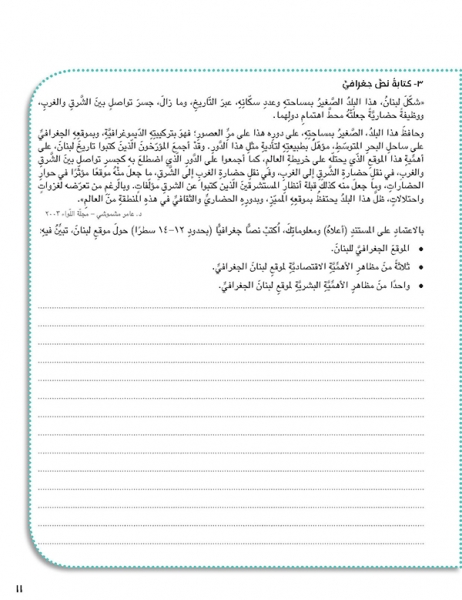 ٣- كتابةُ نصٍّ جغرافيٍّ
«شكّلَ لبنانُ، هذا البلدُ الصّغيرُ بمساحتِهِ وعددِ سكّانِهِ، عبرَ التّاريخِ، وما زالَ، جسرَ تواصلٍ بينَ الشّرقِ والغربِ،
ووظيفةً حضاريّةً جعلَتْهُ محطَّ اهتمامِ دولِهِما.
وحافظَ هذا البلدُ، الصّغيرُ بمساحتِهِ، على دورِهِ هذا على مرِّ العصورِ؛ فهوَ بتركيبتِهِ الدّيموغرافيّةِ، وبموقعِهِ الجغرافيِّ
على ساحلِ البحرِ المتوسّطِ، مؤهّلٌ بطبيعتِهِ لتأديةِ مثلِ هذا الدّورِ. وقدْ أجمعَ المؤرّخونَ الّذينَ كتبوا تاريخَ لبنانَ، على
أهمّيّةِ هذا الموقعِ الّذي يحتلُّهُ على خريطةِ العالمِ، كما أجمعوا على الدّورِ الّذي اضطلعَ بهِ كجسرِ تواصلٍ بينَ الشّرقِ
والغربِ، في نقلِ حضارةِ الشّرقِ إلى الغربِ، وفي نقلِ حضارةِ الغربِ إلى الشّرقِ، ما جعلَ منْهُ موقعًا مؤثّرًا في حوارِ
الحضاراتِ، وما جعلَ منه كذلك قبلةَ أنظارِ المستشرقينَ الّذينَ كتبوا عنِ الشّرقِ مؤلّفاتٍ. وبالرّغمِ من تعرّضِه لغزواتٍ
واحتلالاتٍ، ظلَّ هذا البلدُ يحتفظُ بموقعِهِ المميّزِ، وبدورِهِ الحضاريِّ والثّقافيِّ في هذِهِ المنطقةِ منَ العالمِ».
د. عامر مشموشي – مجلّة اللّواء ٢٠٠٣
بالاعتمادِ على المستندِ (أعلاهُ) ومعلوماتِكَ، أكتبْ نصًّا جغرافيًّا (بحدودِ ١٢-١٤ سطرًا) حولَ موقعِ لبنانَ، تبيّنُ فيهِ:
• الموقعَ الجغرافيَّ للبنانَ.
• ثلاثةً منْ مظاهرِ الأهمّيّةِ الاقتصاديّةِ لموقعِ لبنانَ الجغرافيِّ.
• واحدًا منْ مظاهرِ الأهمّيّةِ البشريّةِ لموقعِ لبنانَ الجغرافيِّ.
١١